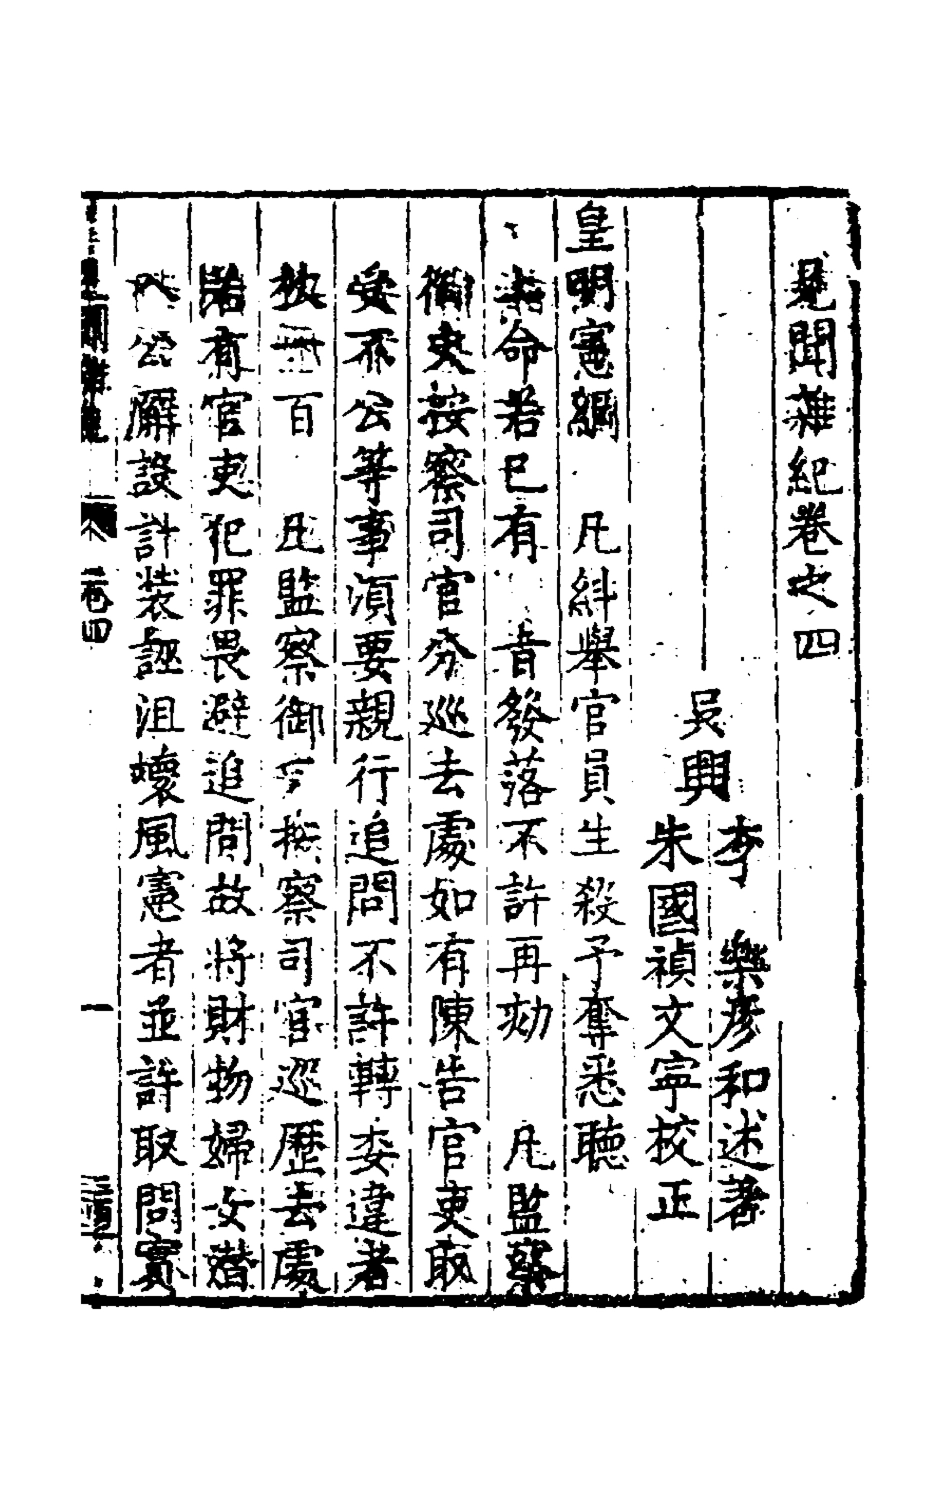 見聞雜紀卷之四
吳興
李 樂彥和述著
朱國禎文寧校正
皇明憲綱 凡糾舉官員生殺予奪悉聽
命若已有 旨發落不許再劾 凡監察
御史按察司官分巡去處如有陳告官吏取
受不公等事湏要親行追問不許轉委違者
杖一百 凡監察御史按察司官巡歷去處
若有官吏犯罪畏避追問故將財物婦女潜
入公廨設計装誣沮壞風憲者並許取問實
卷四
一